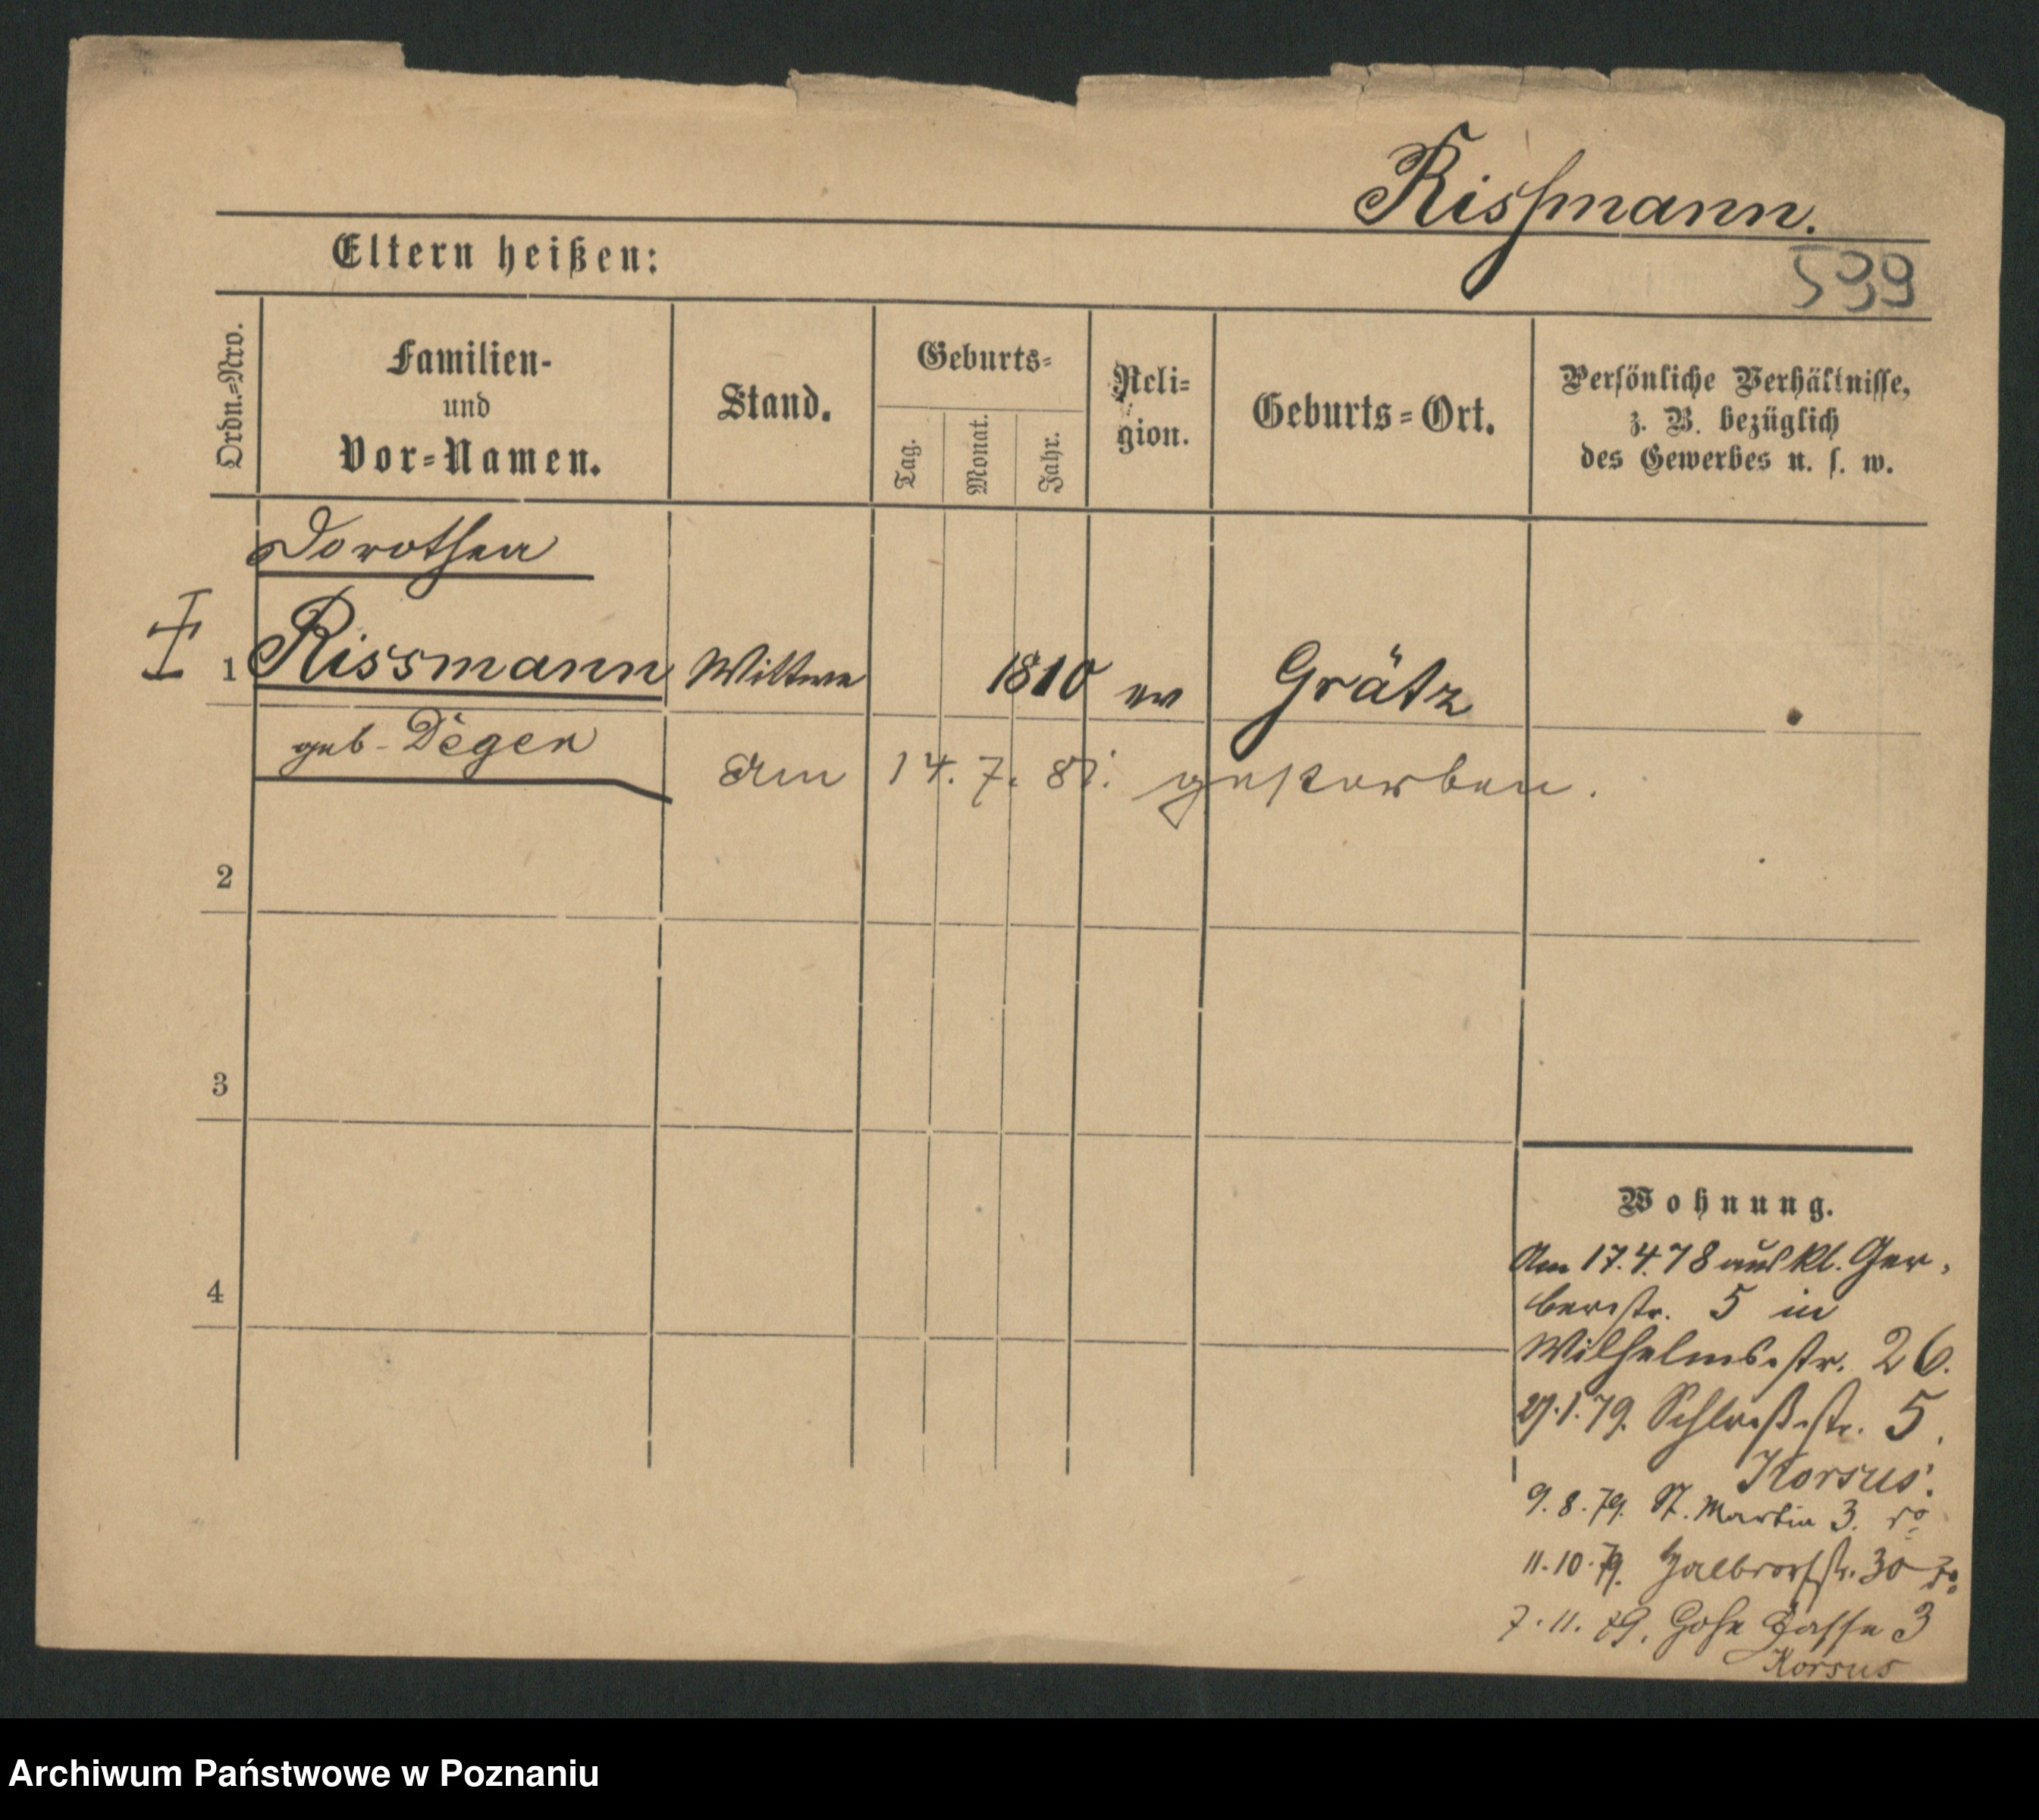 Rissmann.
539
Eltern heißen:
Ordn.=Nro.
Familien-
und
Vor=Namen.
Stand.
Geburts=
Tag.
Monat.
Jahr.
Reli=
gion.
Geburts=Ort.
Persönliche Verhältnisse,
z. B. bezüglich
des Gewerbes u. s. w.
Dorothea
1 Rissmann Wittwe 1810 ev Grätz
geb. Degen
am 14. 7. 81. gestorben.
2
3
4
Wohnung.
Am 17.4.78 aus kl. Ger-
berstr. 5 in
Wilhelmsstr. 26.
27.1.79. Schloßstr. 5.
Korsus.
9.8.79. St. Martin 3.
11.10.79. Halbdorfstr. 30
7.11.79. Hohe Gasse 3
Korsus
Archiwum Państwowe w Poznaniu